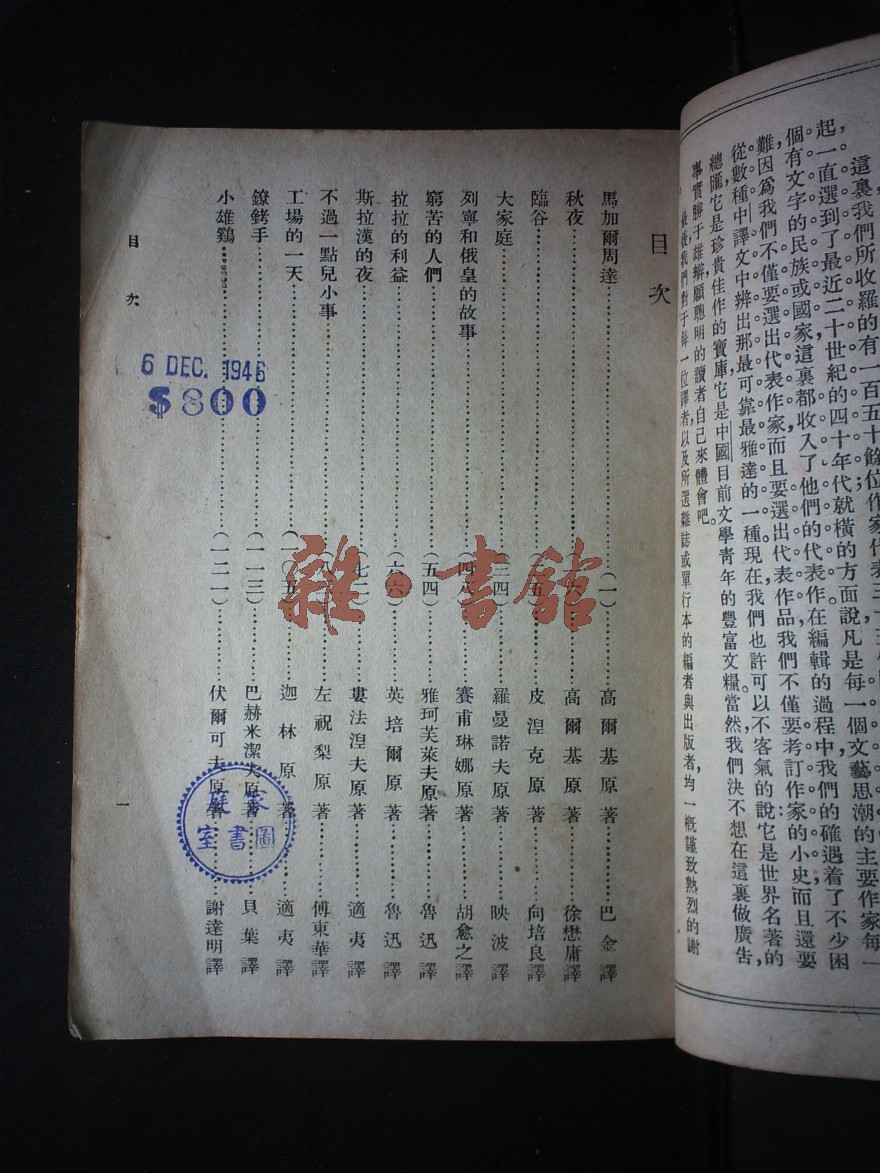 這裏我們所收羅的有一百五十餘位作家代表三十
起，一直選到了最近二十世紀的四十年代就橫的方面說凡是每一個文藝思潮的主要作家每一
個有文字的民族或國家這裏都收入了他們的代表作。在編輯的過程中我們的確遇着了不少困
難，因爲我們不僅要選出代表作家而且要選出代表作品，我們不僅要考訂作家的小史而且還要
從數種中譯文中辨出那最可靠最雅達的一種現在，我們也許可以不客氣的說它是世界名著的
總匯，它是珍貴佳作的寶庫，它是中國目前文學青年的豐富文糧。當然，我們決不想在這裏做廣告，
事實勝于雄辯，願聰明的讀者自己來體會吧。
最後我們對于每一位譯者，以及所選雜誌或單行本的編者與出版者，均一概謹致熱烈的謝
目次
馬加爾周達（一）高爾基原著巴金譯
秋夜高爾基原著徐懋庸譯
臨谷皮涅克原著向培良譯
大家庭三四羅曼諾夫原著映波譯
列寧和俄皇的故事（四八）賽甫琳娜原著胡愈之譯
窮苦的人們（五四）雅珂芙萊夫原著魯迅譯
拉拉的利益（六六）英培爾原著魯迅譯
斯拉漢的夜婁法涅夫原著適夷譯
不過一點兒小事左祝梨原著傅東華譯
工場的一天（一〇五）迦林原著適夷譯
鐐銬手（一一三）巴赫米潔夫原著貝葉譯
小雄鷄（一二一）伏爾可夫原著謝達明譯
目次
一
6 DEC. 1946
$800
圖書室
雜·書館